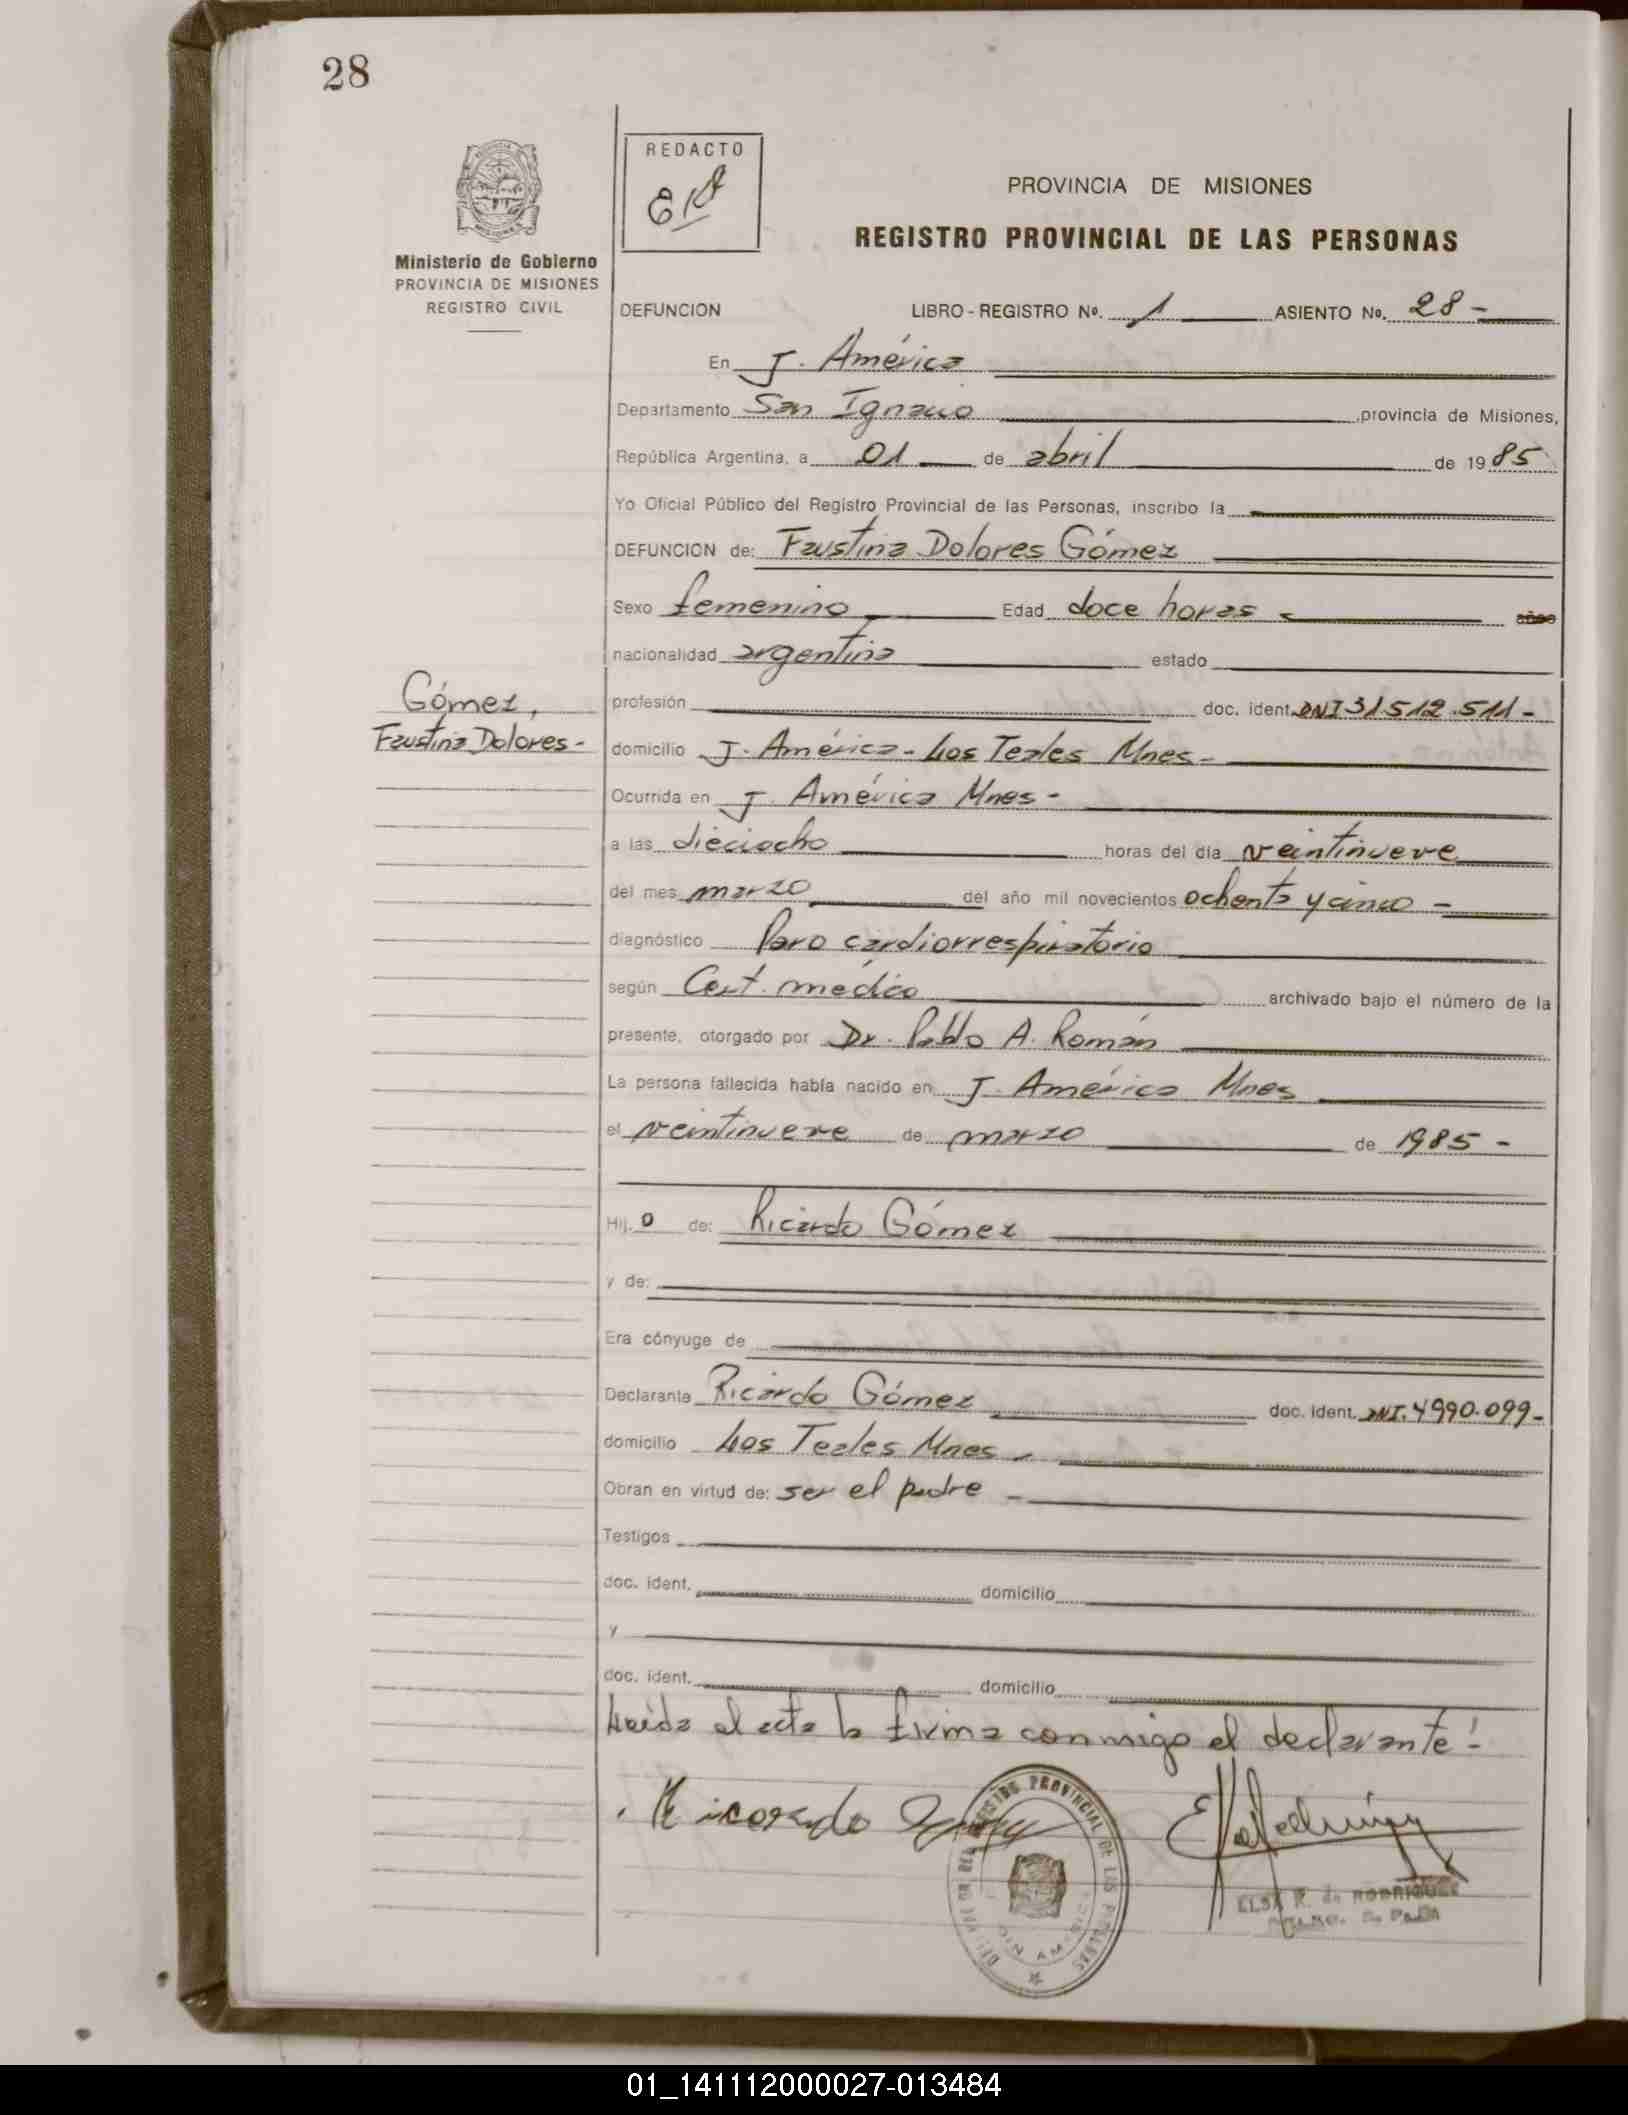 28
REDACTO
PROVINCIA DE MISIONES
REGISTRO PROVINCIAL DE LAS PERSONAS
Ministerio de Gobierno
PROVINCIA DE MISIONES
REGISTRO CIVIL
DEFUNCION LIBRO - REGISTRO Nº. 1 ASIENTO No. 28 -
En J. América
Departamento San Ignacio provincia de Misiones,
República Argentina, a 01 de abril de 1985
Yo Oficial Público del Registro Provincial de las Personas, inscribo la
DEFUNCION de: Faustina Dolores Gómez
Sexo femenino Edad doce horas - años
nacionalidad argentina estado
Gómez,
Faustina Dolores -
profesión doc. ident. DNI 31512.511 -
domicilio J. América - Los Teales Mnes -
Ocurrida en J. América Mnes -
a las dieciocho horas del día veintinueve
del mes marzo del año mil novecientos ochenta y cinco -
diagnóstico Paro cardiorrespiratorio
según Cert. médico archivado bajo el número de la
presente, otorgado por Dr. Pablo A. Román
La persona fallecida había nacido en J. América Mnes
el veintinueve de marzo de 1985 -
Hij. o de: Ricardo Gómez
y de:
Era cónyuge de
Declarante Ricardo Gómez doc. ident. DNI. 4990.099 -
domicilio Los Teales Mnes -
Obran en virtud de: ser el padre -
Testigos
doc. ident. domicilio
y
doc. ident. domicilio
Leída el acta la firma conmigo el declarante! -
REGISTRO PROVINCIAL DE LAS PERSONAS
ELSA R. de RODRIGUEZ
01_141112000027-013484